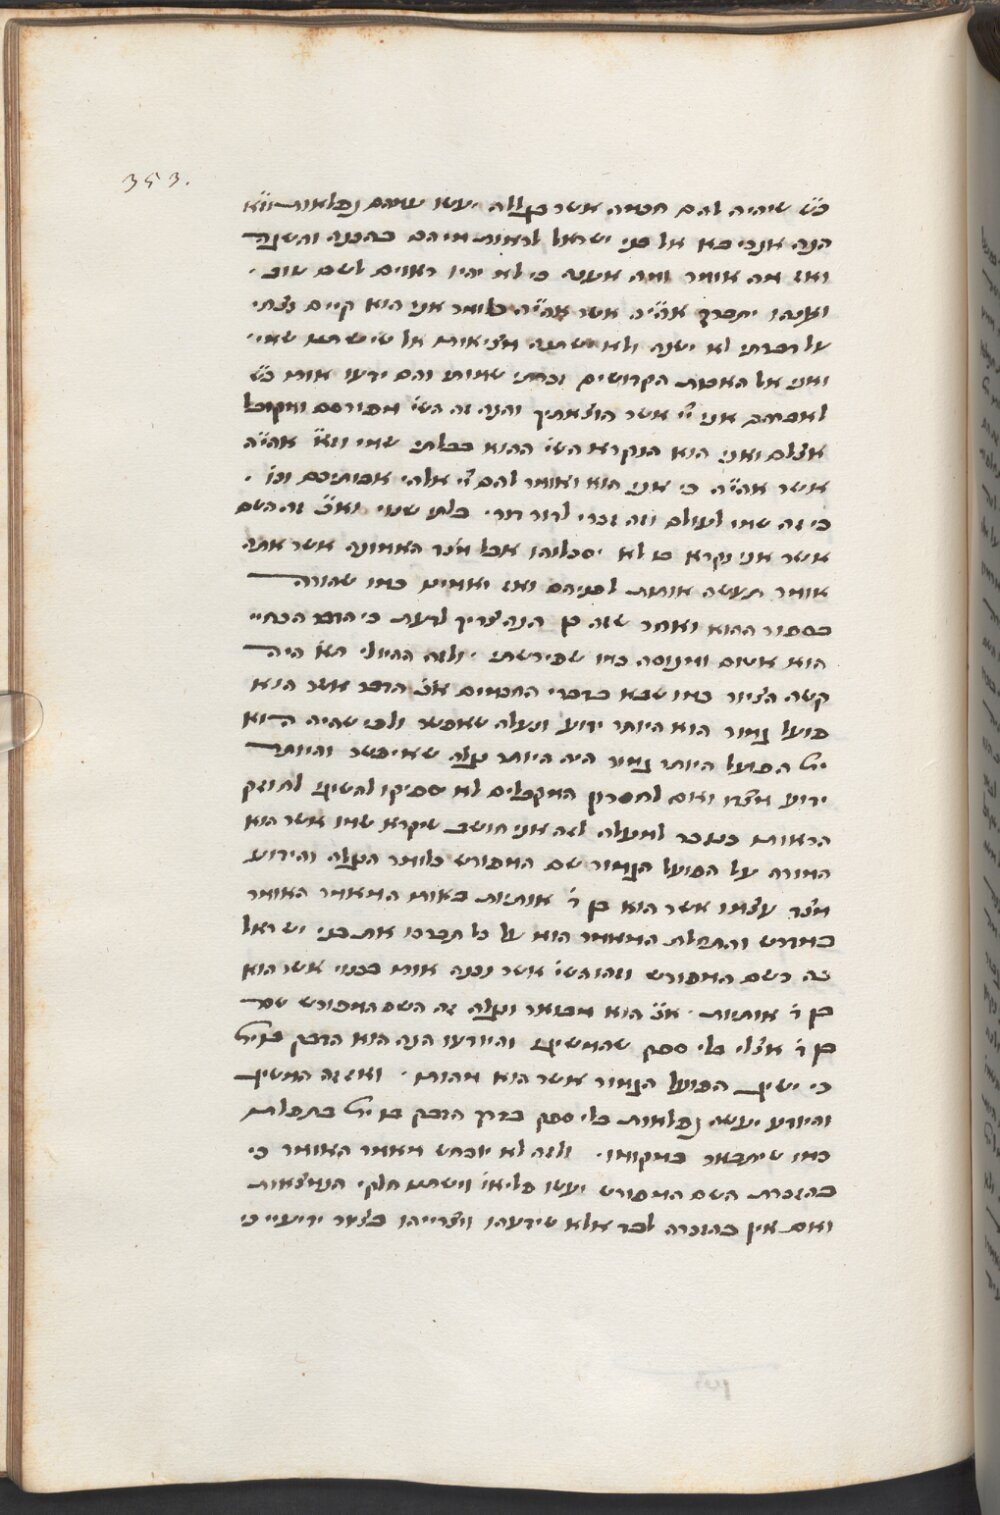 353.
כ״ש שיהיה להם חכמה אשר בגללה יעשו עמהם נפלאות וז״א
הנה אנכי בא אל בני ישראל לראות אי הם בהכנה והשגה
ואז מה אומר ומה אענה כי לא יהיו ראוים לשם שוב .
ואנהו יתברך אה״יה אשר אה״יה כלומר אני הוא קיים נצחי
על דברתי לא ישנה ולא ישתנה מציאות אל שישתנו שמי
ואני אל האבות הקדושים וכרתי שמותי והם ידעו אותו כ״ש
לאברהם אני יי׳ אשר הוצאתיך והנה זה השי׳ מפורסם ומקובל
אצלם ואני הוא הנקרא השי׳ ההוא בבלתי שמי וז״א אה״יה
אשר אה״יה כי אני הוא ואומר להם יי׳ אלהי אבותיכם וכו׳ .
כי זה שמי לעולם וזה זכרי לדור דור בלתי שנוי וא״כ זה השם
אשר אני נקרא בו לא יסבלוהו אבל מצד האמונה אשר אתה
אומר תעשה אותות לפניהם ואז יאמינו כמו שהורה
בספור ההוא ואחר שזה כן הנה צריך לדעת כי הדבר הכחיי
הוא אטום ומנוסה כמו שפירשתי . ולזה ההיולי היה
קשה הציור כמו שבא בדברי החכמים א״כ הדבר אשר הוא
פועל גמור הוא היותר ידוע ונעלה שאפשר ולפי שהיה הוא
ית׳ הפועל היותר גמור היה היותר נגלה שאיפשר והיותר
ידוע מצדו ואם לחסרון המקבלים לא יספיקו להשיגו לחוזק
הראות כנזכר למעלה לזה אני חושב שיקרא שמו אשר הוא
המורה על הפועל הגמור שם המפורש כלומר הנגלה והידוע
מצד עצמו אשר הוא בן ד׳ אותיות באות המאמר האומר
במדרש והתחלת המאמר הוא על כל תברכו את בני ישראל
כה בשם המפורש וזהו השי׳ אשר נכנה אותו בכנוי אשר הוא
בן ד׳ אותיות . א״כ הוא מבואר ונגלה זה השם המפורש שם
בן ד׳ אצלי בלי ספק שהמשיגו והיודעו הנה הוא הדבק בו ית׳
כי ישיג הפועל הגמור אשר הוא מהותו . ואז זה המשיג
והיודע יעשה נפלאות בלי ספק בדרך הדבק בו ית׳ בתפלות
כמו שיתבאר במקומו . ולזה לא יוכחש מאמר האומר כי
בהזכרת השם המפורש יעשו פליאו׳ וישתנו חלקי הנמצאות
ואם אין בהזכרה לבד אלא שידעהו ויצרייהו בציור ידיעיי כי